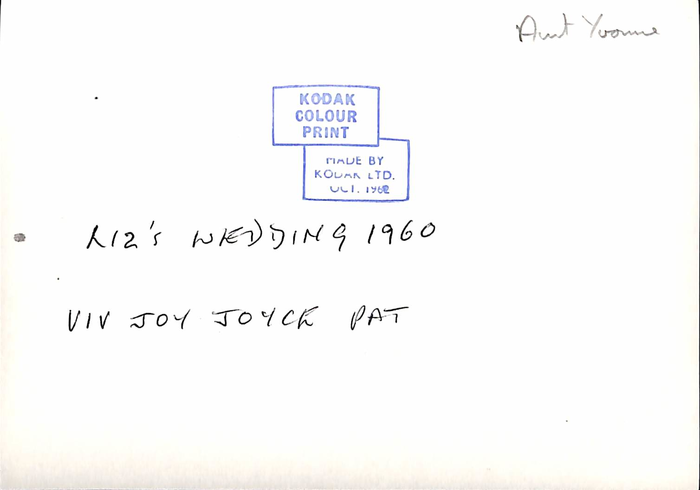 Aunt Yvonne
KODAK
COLOUR
PRINT
MADE BY
KODAK LTD.
OCT. 1962
LIZ'S WEDDING 1960
VIV JOY JOYCE PAT